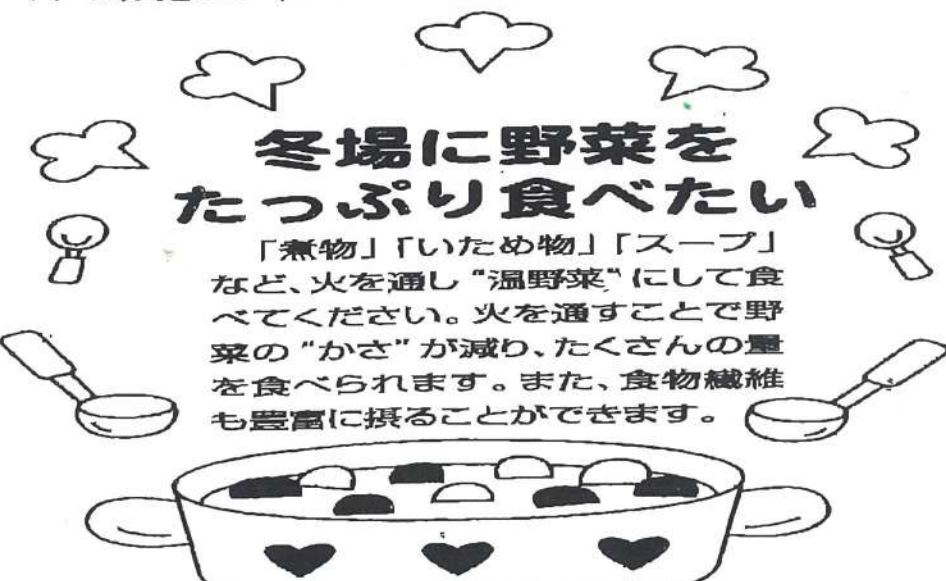 冬場に野菜を
たっぷり食べたい
「煮物」「いため物」「スープ」
など、火を通し“温野菜”にして食
べてください。火を通すことで野
菜の“かさ”が減り、たくさんの量
を食べられます。また、食物繊維
も豊富に摂ることができます。